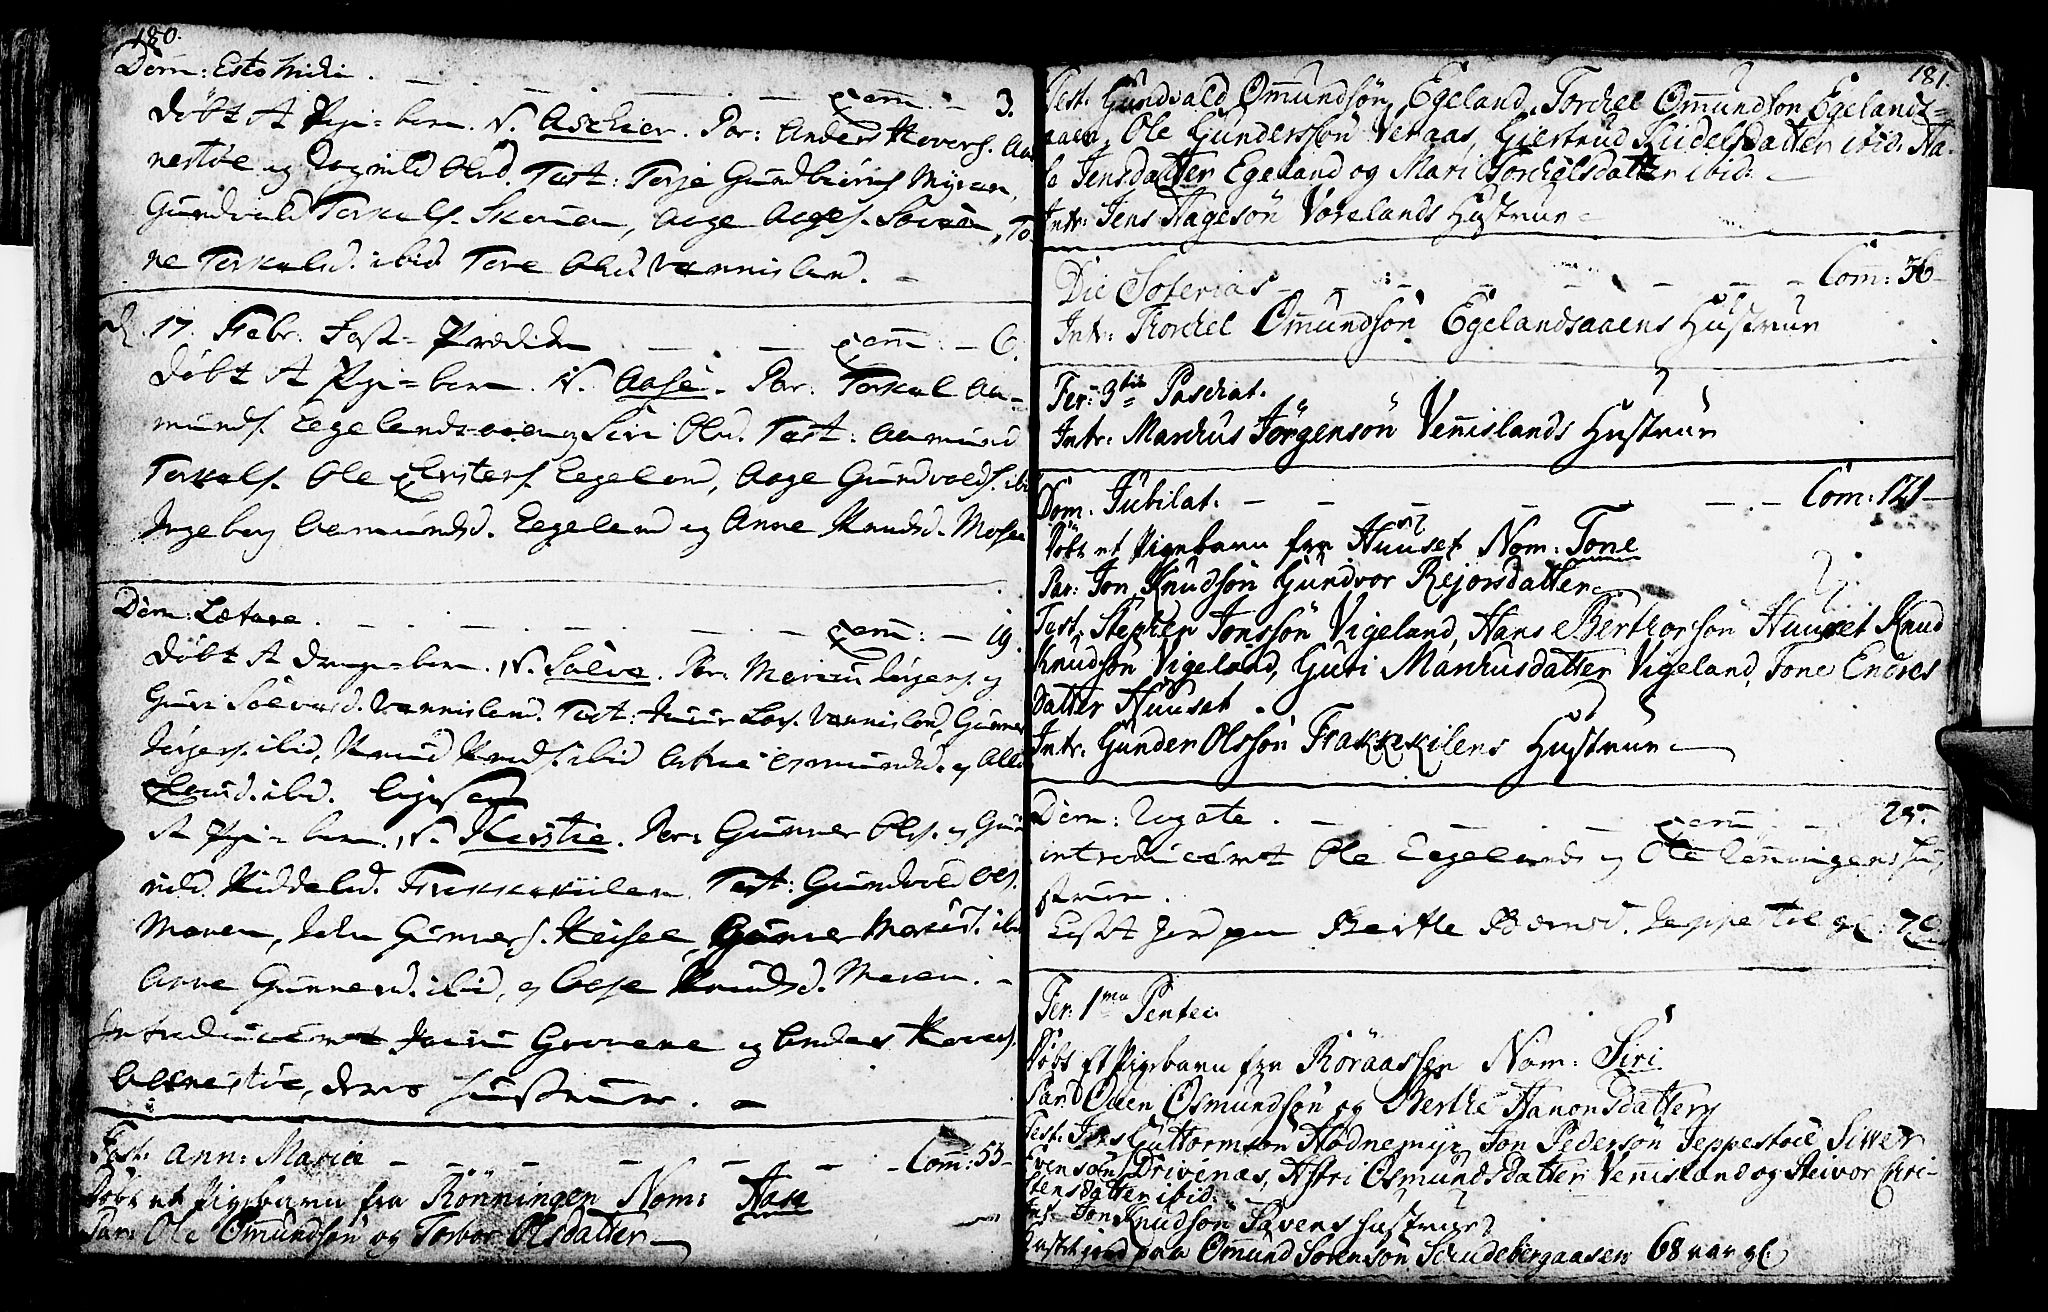 180.
Dom: Esto mihi . — . — . — . — Com: — 3.
Døbt et Pige-barn. N. Aschier. Par: Anders Haavers. Aas
nestöe og Ragnild Olsd. Test: Terje Gundbiörns Myren,
Gundvald Torkels. Skouen, Aage Aages. Loviisen, To-
ne Torkelsd. ibid. Tore Olsd. Vennisland. —
d. 17. Febr. Faste-Prædiken — — Com: — 6.
Døbt et Pige-barn. N. Aase. Par: Torkel Aa-
munds. Eegelandsaaen og Siri Olsd. Test: Aamund
Torkels. Ole Christens. Eegeland, Aage Gundvolds. ibid
Ingeborg Aamundsd. Eegeland og Anne Knudsd. Mosen
Dom: Lætare . — . — . — . — Com: — 19.
Døbt et Drenge-barn. N. Salve. Par: Marcus Jörgens. og
Guri Salvesd. Vennisland. Test: Lars. Vennisland, Gunner
Jörgens. ibid, Knud Knuds. ibid Osmundsd. og
ibid. Ligesaa
et Pige-barn. N. Kirstie. Par: Gunner Ols. og Gun
nild Kiddelsd. Frakkekiilen. Test: Gundvold Ols.
Moren, John Gunners. Heisel, Gunner ibid
Anne Gunnersd. ibid, og Aase Knudsd. Moren. —
Introduceret Grovene og Anders Haavers.
Aasnestöe, deres Hustruer. —
Fest. Ann: Maria — — — — — — Com: 53—
Döbt et Pigebarn fra Rönningen Nom: Aase
Par: Ole Omundsön og Torbor Olsdatter
181.
Test. Gundvald Omundsön Egeland, Torchel Omundsön Egelands-
aaen, Ole Gundersön Veraas, Giertrud Kidelsdatter ibid. Aa-
se Jensdatter Egeland og Mari Torchelsdatter ibid: —
Intr: Jens Aagesön Vorelands Hustrue
Die Soterias — — — — — Com: 36—
Intr: Torchel Omundsön Egelandsaaens Hustrue
Fer: 3tia Paschat.
Intr: Marchus Jörgensön Vennislands Hustrue
Dom. Jubilat. — — — — — Com: 121—
Döbt et Pigebarn fra Huuset Nom: Tone
Par: Jon Knudsön Gundvor Rejorsdatter
Test. Stephen Jonssön Vigeland, Hans Berthorsön Huuset Knud
Knudsön Vigeland, Guri Marchusdatter Vigeland, Tone Endres
datter Huuset .
Intr: Gunder Olssön Frakkekilens Hustrue
Dom: Rogate . — — — Com — 25.
introduceret Ole Eegelands og Ole Rönningens Hu-
struer.
Kast Jord paa Berthe Biörnsd. Jeppestöl gl: 70
Fer. 1ma Pentec.
Döbt et Pigebarn fra Röraassen Nom: Siri
Par: Oden Osmundsön og Berthe Hanonsdatter
Test. Jens Guttormsön Hodnemyr, Jon Pedersön Jeppestoel Siver
Evensön Drivenæs, Astri Osmundsdatter Vennisland og Steivor Chri-
stensdatter ibid:
Int: Jon Knudsön Savens Hustrue
Kastet jord paa Omund Sorensön Skudebergaasen 68 aar gl.